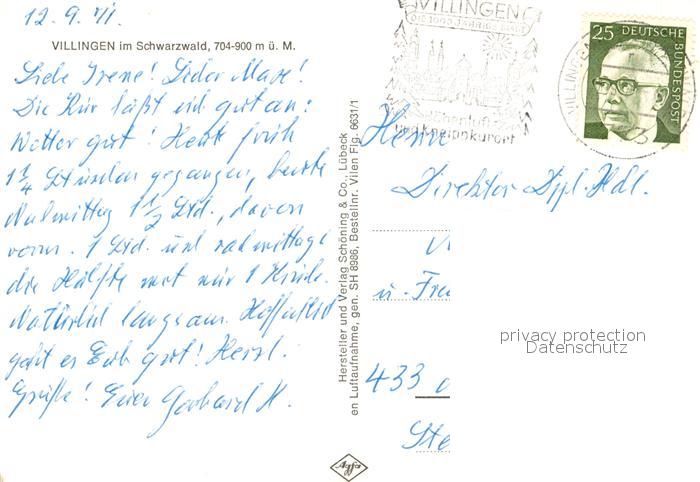 12. 9. 71
VILLINGEN im Schwarzwald, 704-900 m ü. M.
Liebe Irene! Lieber Max!
Die Kur läßt sich gut an:
Wetter gut! Heute früh
1 1/4 Stunden gegangen, heute
Nachmittag 1 1/2 Std., davon
vorm. 1 Std. und nachmittags
die Hälfte mit nur 1
Natürlich langsam. Hoffentlich
geht es Euch gut! Herzl.
Grüße! Euer Gerhard H.
Hersteller und Verlag Schöning & Co., Lübeck
en Luftaufnahme, gen. SH 8986, Bestellnr. Vilen Flg. 6631/1
Agfa
VILLINGEN
DIE 1000 JÄHRIGE STADT
und Kneippkurort
VILLINGEN
25 DEUTSCHE
BUNDESPOST
Herrn
Direktor Dpl. Hdl.
u. Fra
433
Ste
privacy protection
Datenschutz